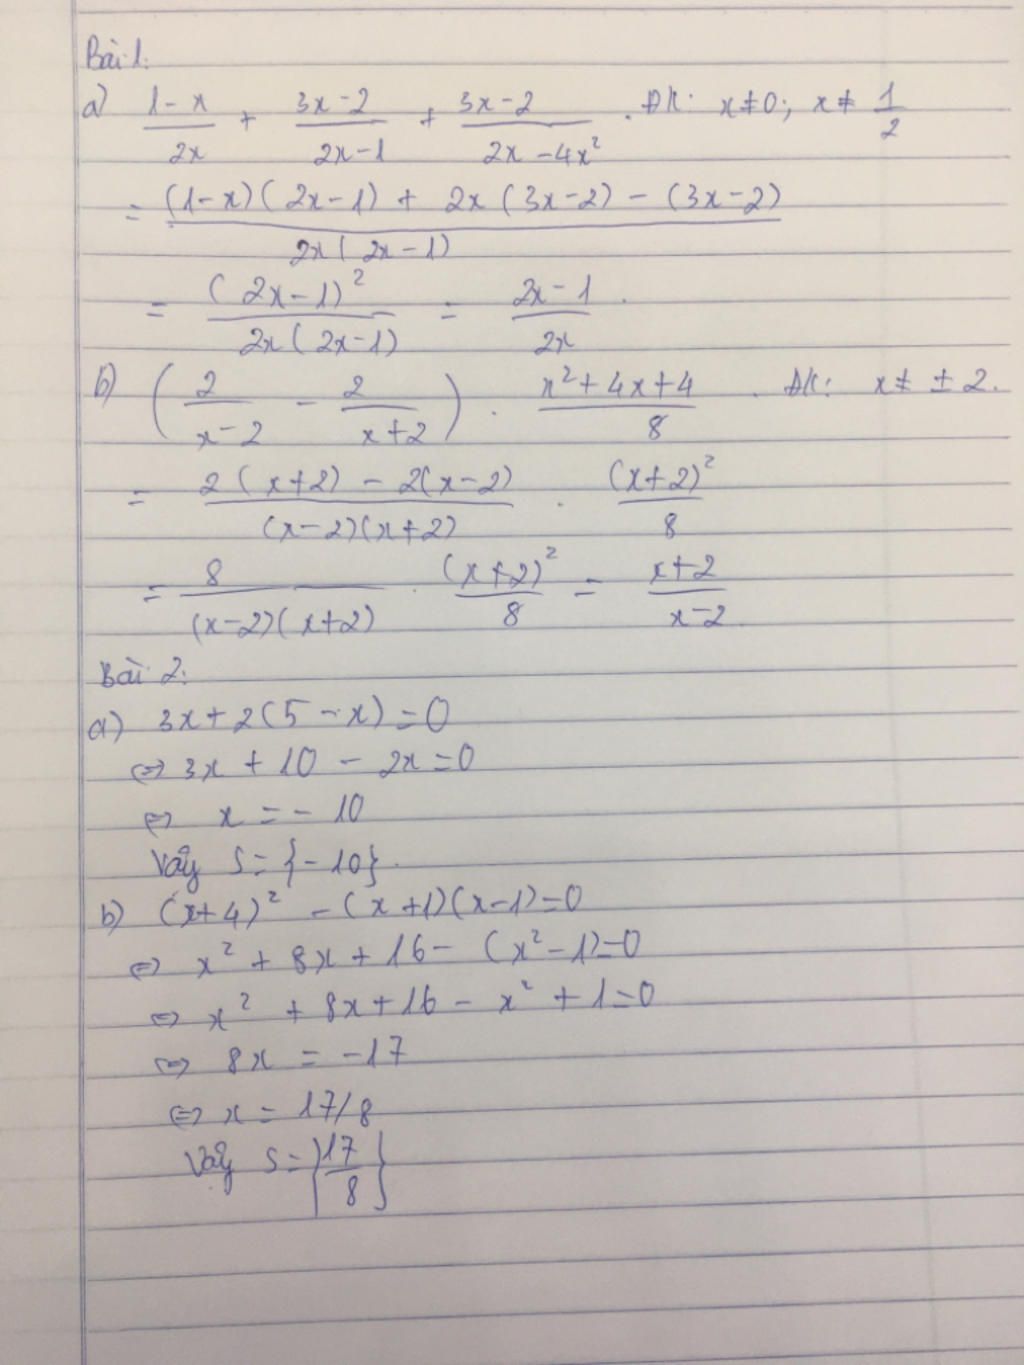 Bài 1:
a) (1-x)/(2x) + (3x-2)/(2x-1) + (3x-2)/(2x-4x²) . ĐK: x≠0; x≠ 1/2
= ((1-x)(2x-1) + 2x(3x-2) - (3x-2))/(2x(2x-1))
= (2x-1)²/(2x(2x-1)) = (2x-1)/(2x) .
b) (2/(x-2) - 2/(x+2)) . (x²+4x+4)/8 . ĐK: x≠ ±2.
= (2(x+2) - 2(x-2))/((x-2)(x+2)) . (x+2)²/8
= 8/((x-2)(x+2)) . (x+2)²/8 = (x+2)/(x-2).
Bài 2:
a) 3x+2(5-x)=0
⇔ 3x+10-2x=0
⇔ x=-10
Vậy S={-10}.
b) (x+4)² - (x+1)(x-1)=0
⇔ x²+8x+16-(x²-1)=0
⇔ x²+8x+16-x²+1=0
⇔ 8x = -17
⇔ x = 17/8
Vậy S={17/8}